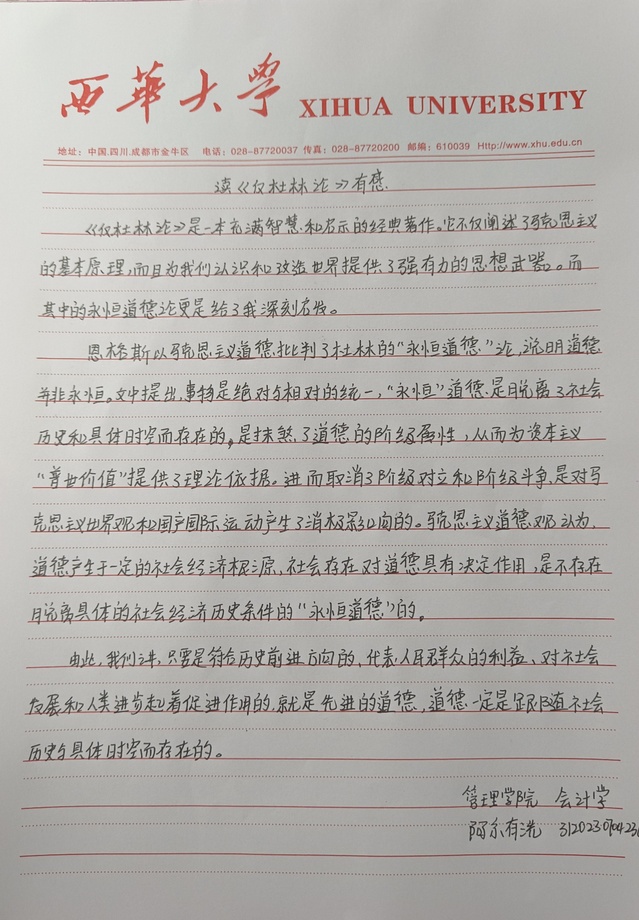 西華大学 XIHUA UNIVERSITY
地址：中国.四川.成都市金牛区 电话：028-87720037 传真：028-87720200 邮编：610039 Http://www.xhu.edu.cn
读《反杜林论》有感.
《反杜林论》是一本充满智慧和启示的经典著作。它不仅阐述了马克思主义
的基本原理,而且为我们认识和改造世界提供了强有力的思想武器。而
其中的永恒道德论更是给了我深刻启发。
恩格斯以马克思主义道德批判了杜林的“永恒道德”论,说明道德
并非永恒。文中提出,事物是绝对与相对的统一,“永恒”道德是脱离了社会
历史和具体时空而存在的,是抹煞了道德的阶级属性,从而为资本主义
“普世价值”提供了理论依据。进而取消了阶级对立和阶级斗争,是对马
克思主义世界观和国产国际运动产生了消极影响的。马克思主义道德观认为,
道德产生于一定的社会经济根源、社会存在对道德具有决定作用,是不存在
脱离具体的社会经济历史条件的“永恒道德”的。
由此,我们主,只要是符合历史前进方向的、代表人民群众的利益、对社会
发展和人类进步起着促进作用的,就是先进的道德,道德一定是跟随社会
历史与具体时空而存在的。
管理学院 会计学
阿尔有洗 312023070423